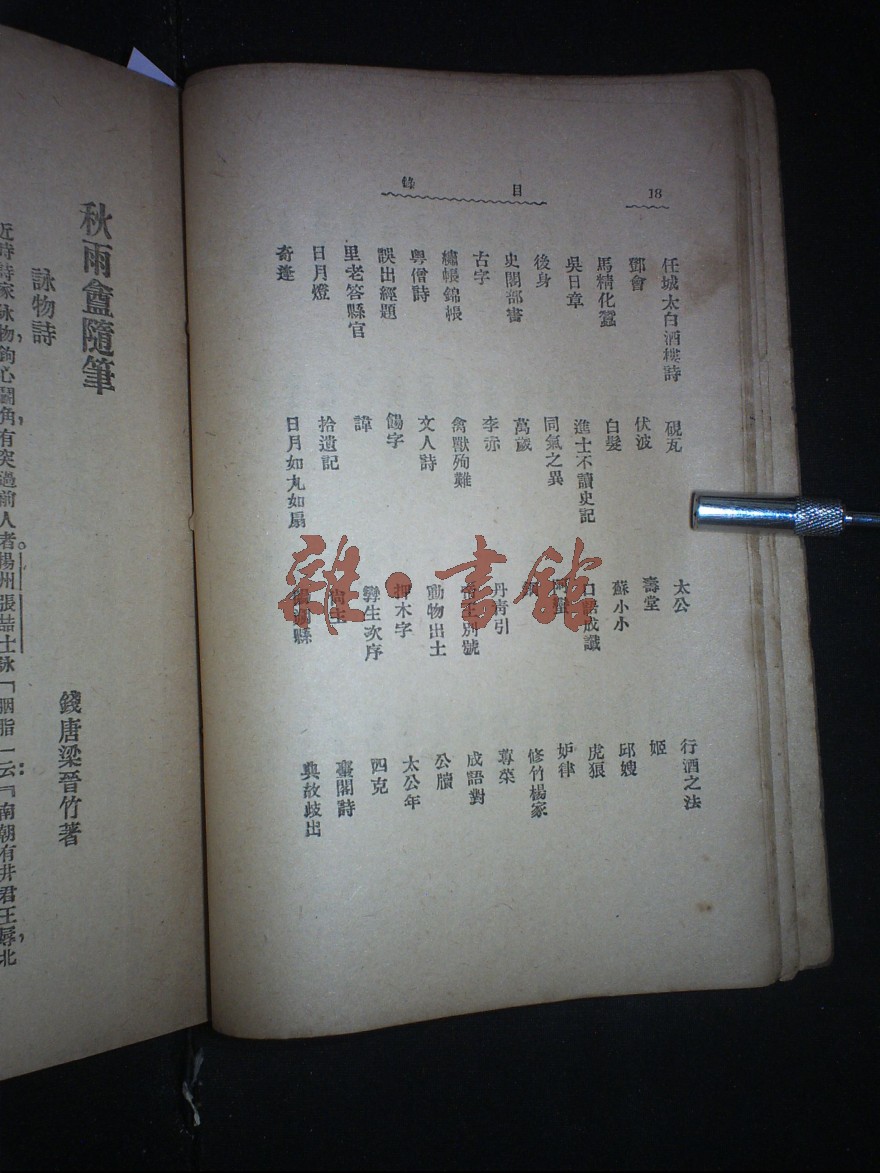 18
目錄
任城太白酒樓詩
鄧會
馬精化蠶
吳日章
後身
史閣部書
古字
繡帳錦帳
粵僧詩
誤出經題
里老答縣官
日月燈
奇逢
硯瓦
伏波
白髮
進士不讀史記
同氣之異
萬歲
李赤
禽獸殉難
文人詩
餳字
諱
拾遺記
日月如丸如扇
太公
壽堂
蘇小小
口語成讖
丹靑引
帝王別號
動物出土
押木字
孿生次序
尚主
縣
行酒之法
姬
邱嫂
虎狼
妒律
修竹楊家
蓴菜
成語對
公牘
太公年
四克
臺閣詩
典故歧出
秋雨盦隨筆
錢唐梁晉竹著
詠物詩
近時詩家詠物，鉤心鬭角，有突過前人者。揚州張喆士詠「胭脂」云：「南朝有井君王辱，北
雜·書館